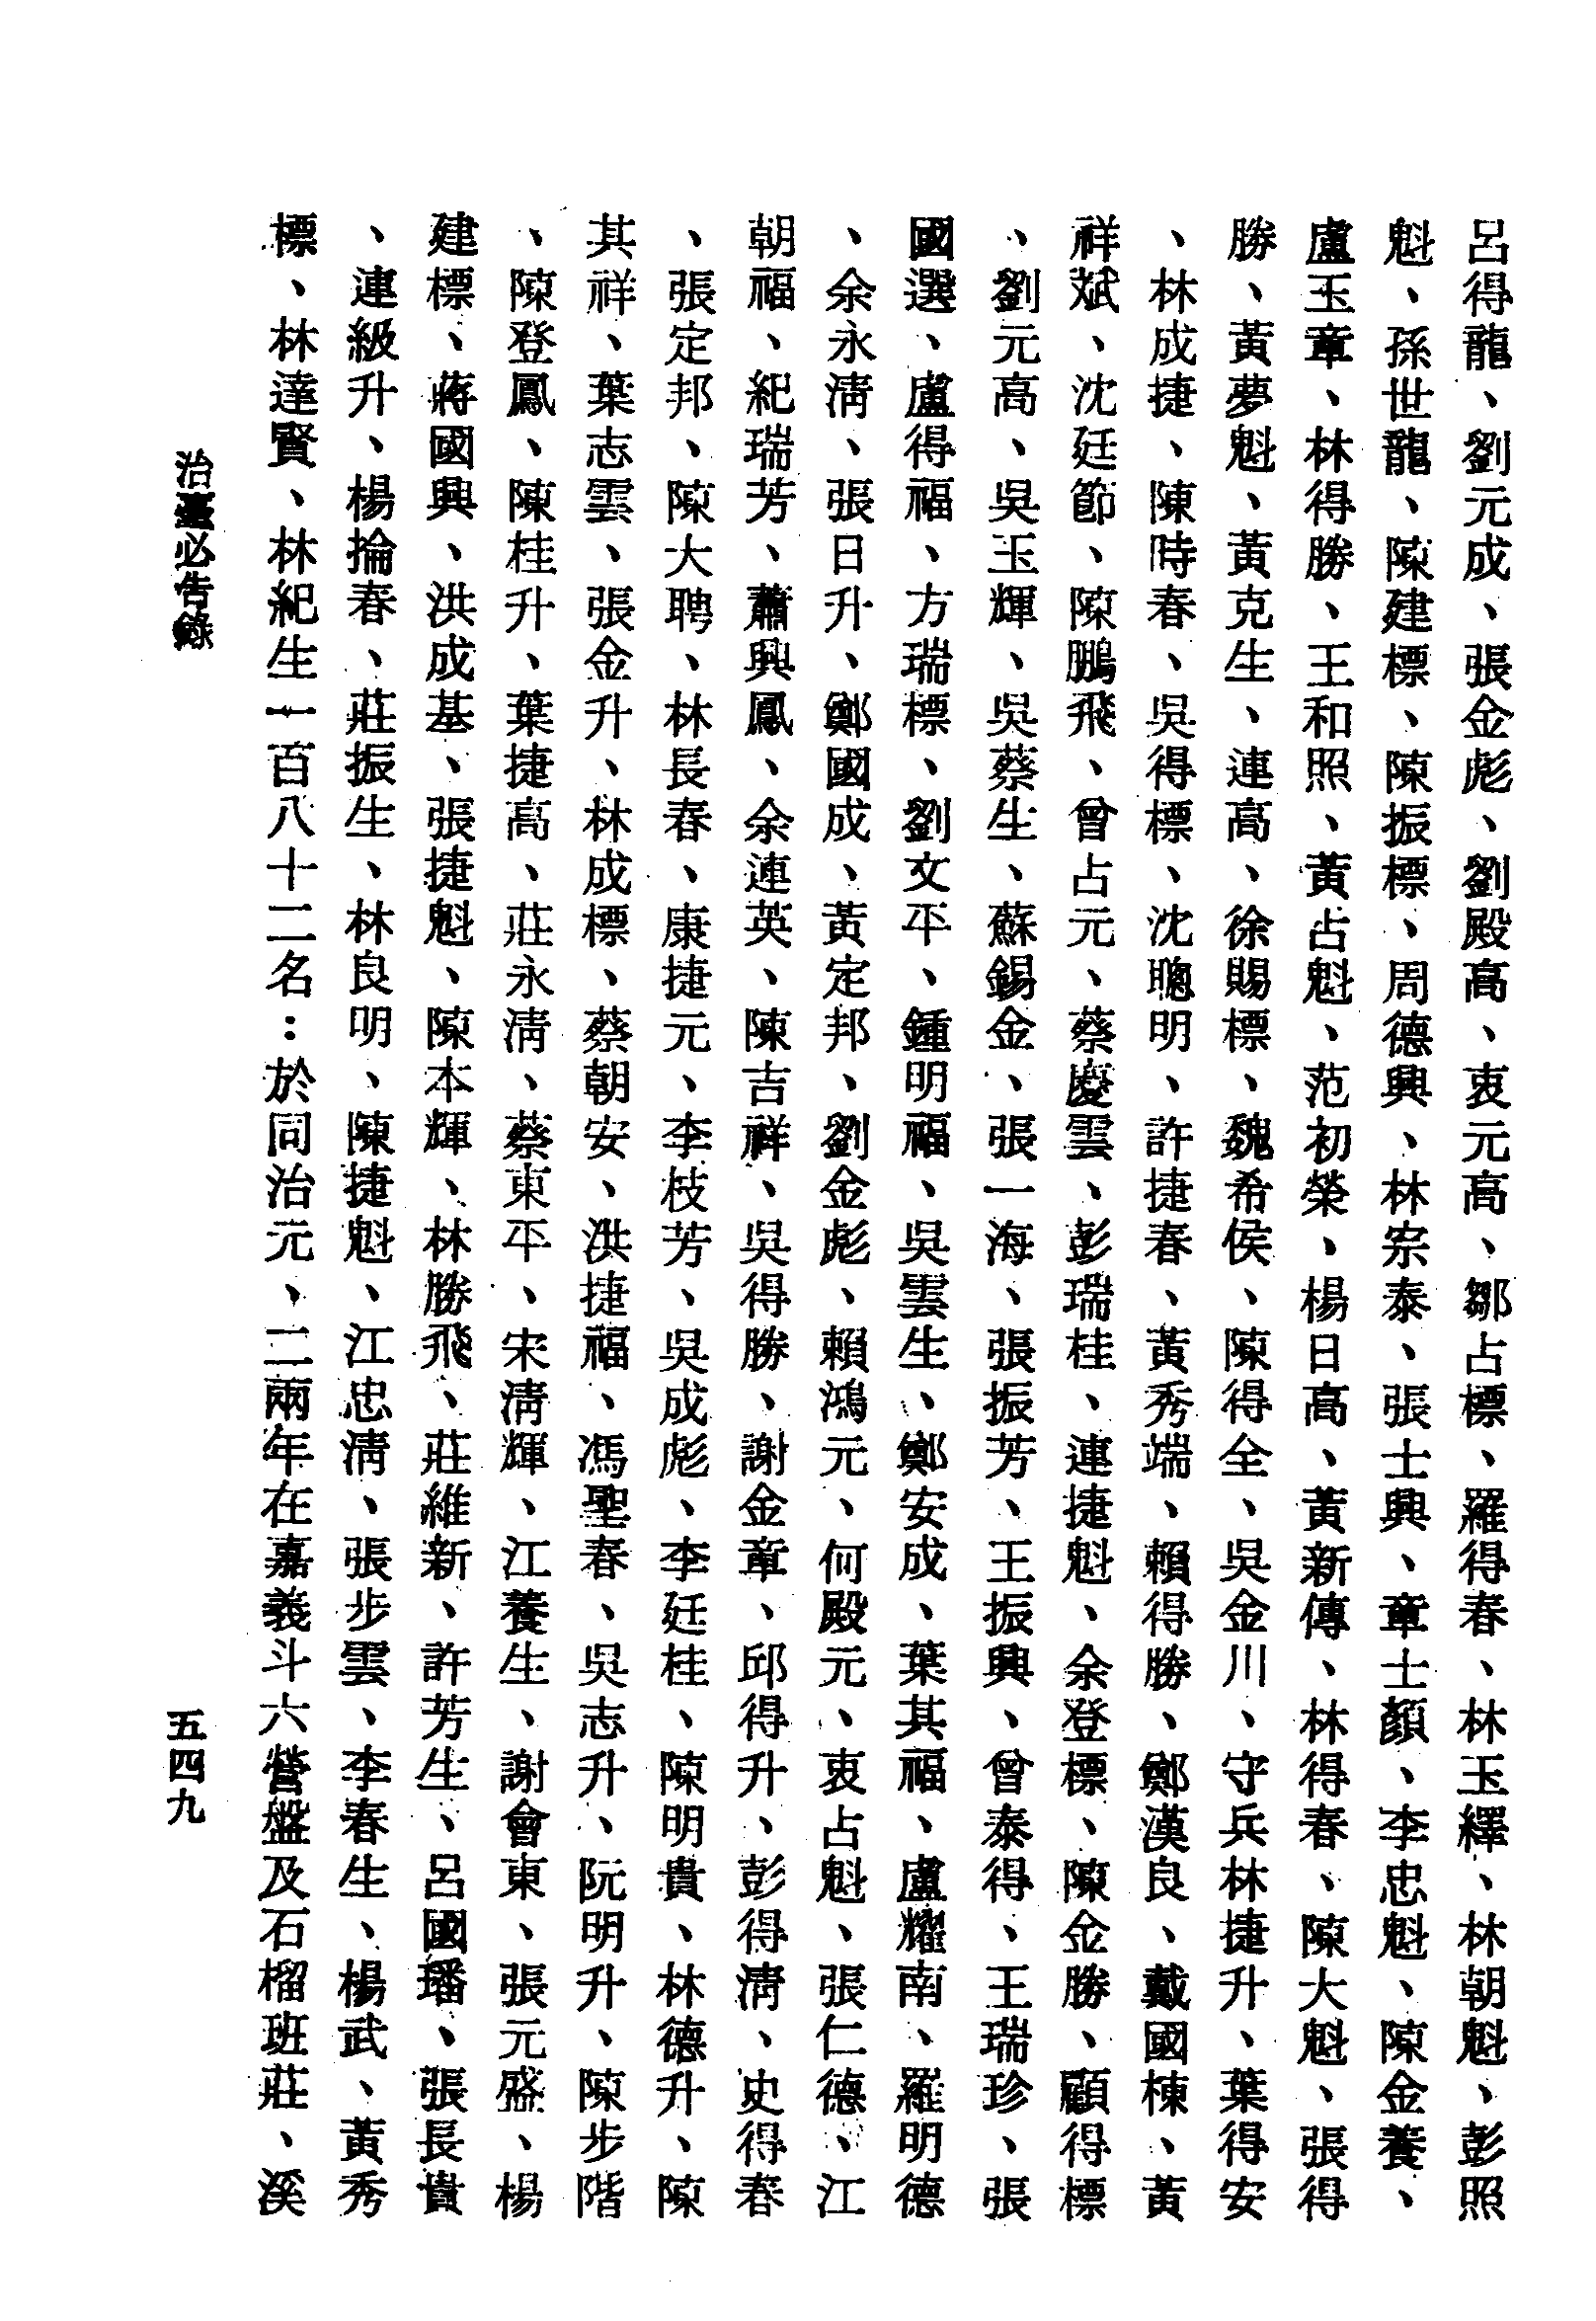 呂得龍、劉元成、張金彪、劉殿高、衷元高、鄒占標、羅得春、林玉繹、林朝魁、彭照
魁、孫世龍、陳建標、陳振標、周德興、林宗泰、張士興、章士顏、李忠魁、陳金養、
盧玉章、林得勝、王和照、黃占魁、范初榮、楊日高、黃新傳、林得春、陳大魁、張得
勝、黃夢魁、黃克生、連高、徐賜標、魏希侯、陳得全、吳金川、守兵林捷升、葉得安
、林成捷、陳時春、吳得標、沈聰明、許捷春、黃秀端、賴得勝、鄭漢良、戴國棟、黃
祥斌、沈廷節、陳鵬飛、曾占元、蔡慶雲、彭瑞桂、連捷魁、余登標、陳金勝、顧得標
、劉元高、吳玉輝、吳蔡生、蘇錫金、張一海、張振芳、王振興、曾泰得、王瑞珍、張
國選、盧得福、方瑞標、劉文平、鍾明福、吳雲生、鄭安成、葉其福、盧耀南、羅明德
、余永清、張日升、鄭國成、黃定邦、劉金彪、賴鴻元、何殿元、衷占魁、張仁德、江
朝福、紀瑞芳、蕭興鳳、余連英、陳吉祥、吳得勝、謝金章、邱得升、彭得清、史得春
、張定邦、陳大聘、林長春、康捷元、李枝芳、吳成彪、李廷桂、陳明貴、林德升、陳
其祥、葉志雲、張金升、林成標、蔡朝安、洪捷福、馮聖春、吳志升、阮明升、陳步階
、陳登鳳、陳桂升、葉捷高、莊永清、蔡東平、宋清輝、江養生、謝會東、張元盛、楊
建標、蔣國興、洪成基、張捷魁、陳本輝、林勝飛、莊維新、許芳生、呂國璠、張長貴
、連級升、楊掄春、莊振生、林良明、陳捷魁、江忠清、張步雲、李春生、楊武、黃秀
標、林達賢、林紀生一百八十二名：於同治元、二兩年在嘉義斗六營盤及石榴班莊、溪
治臺必告錄
五四九